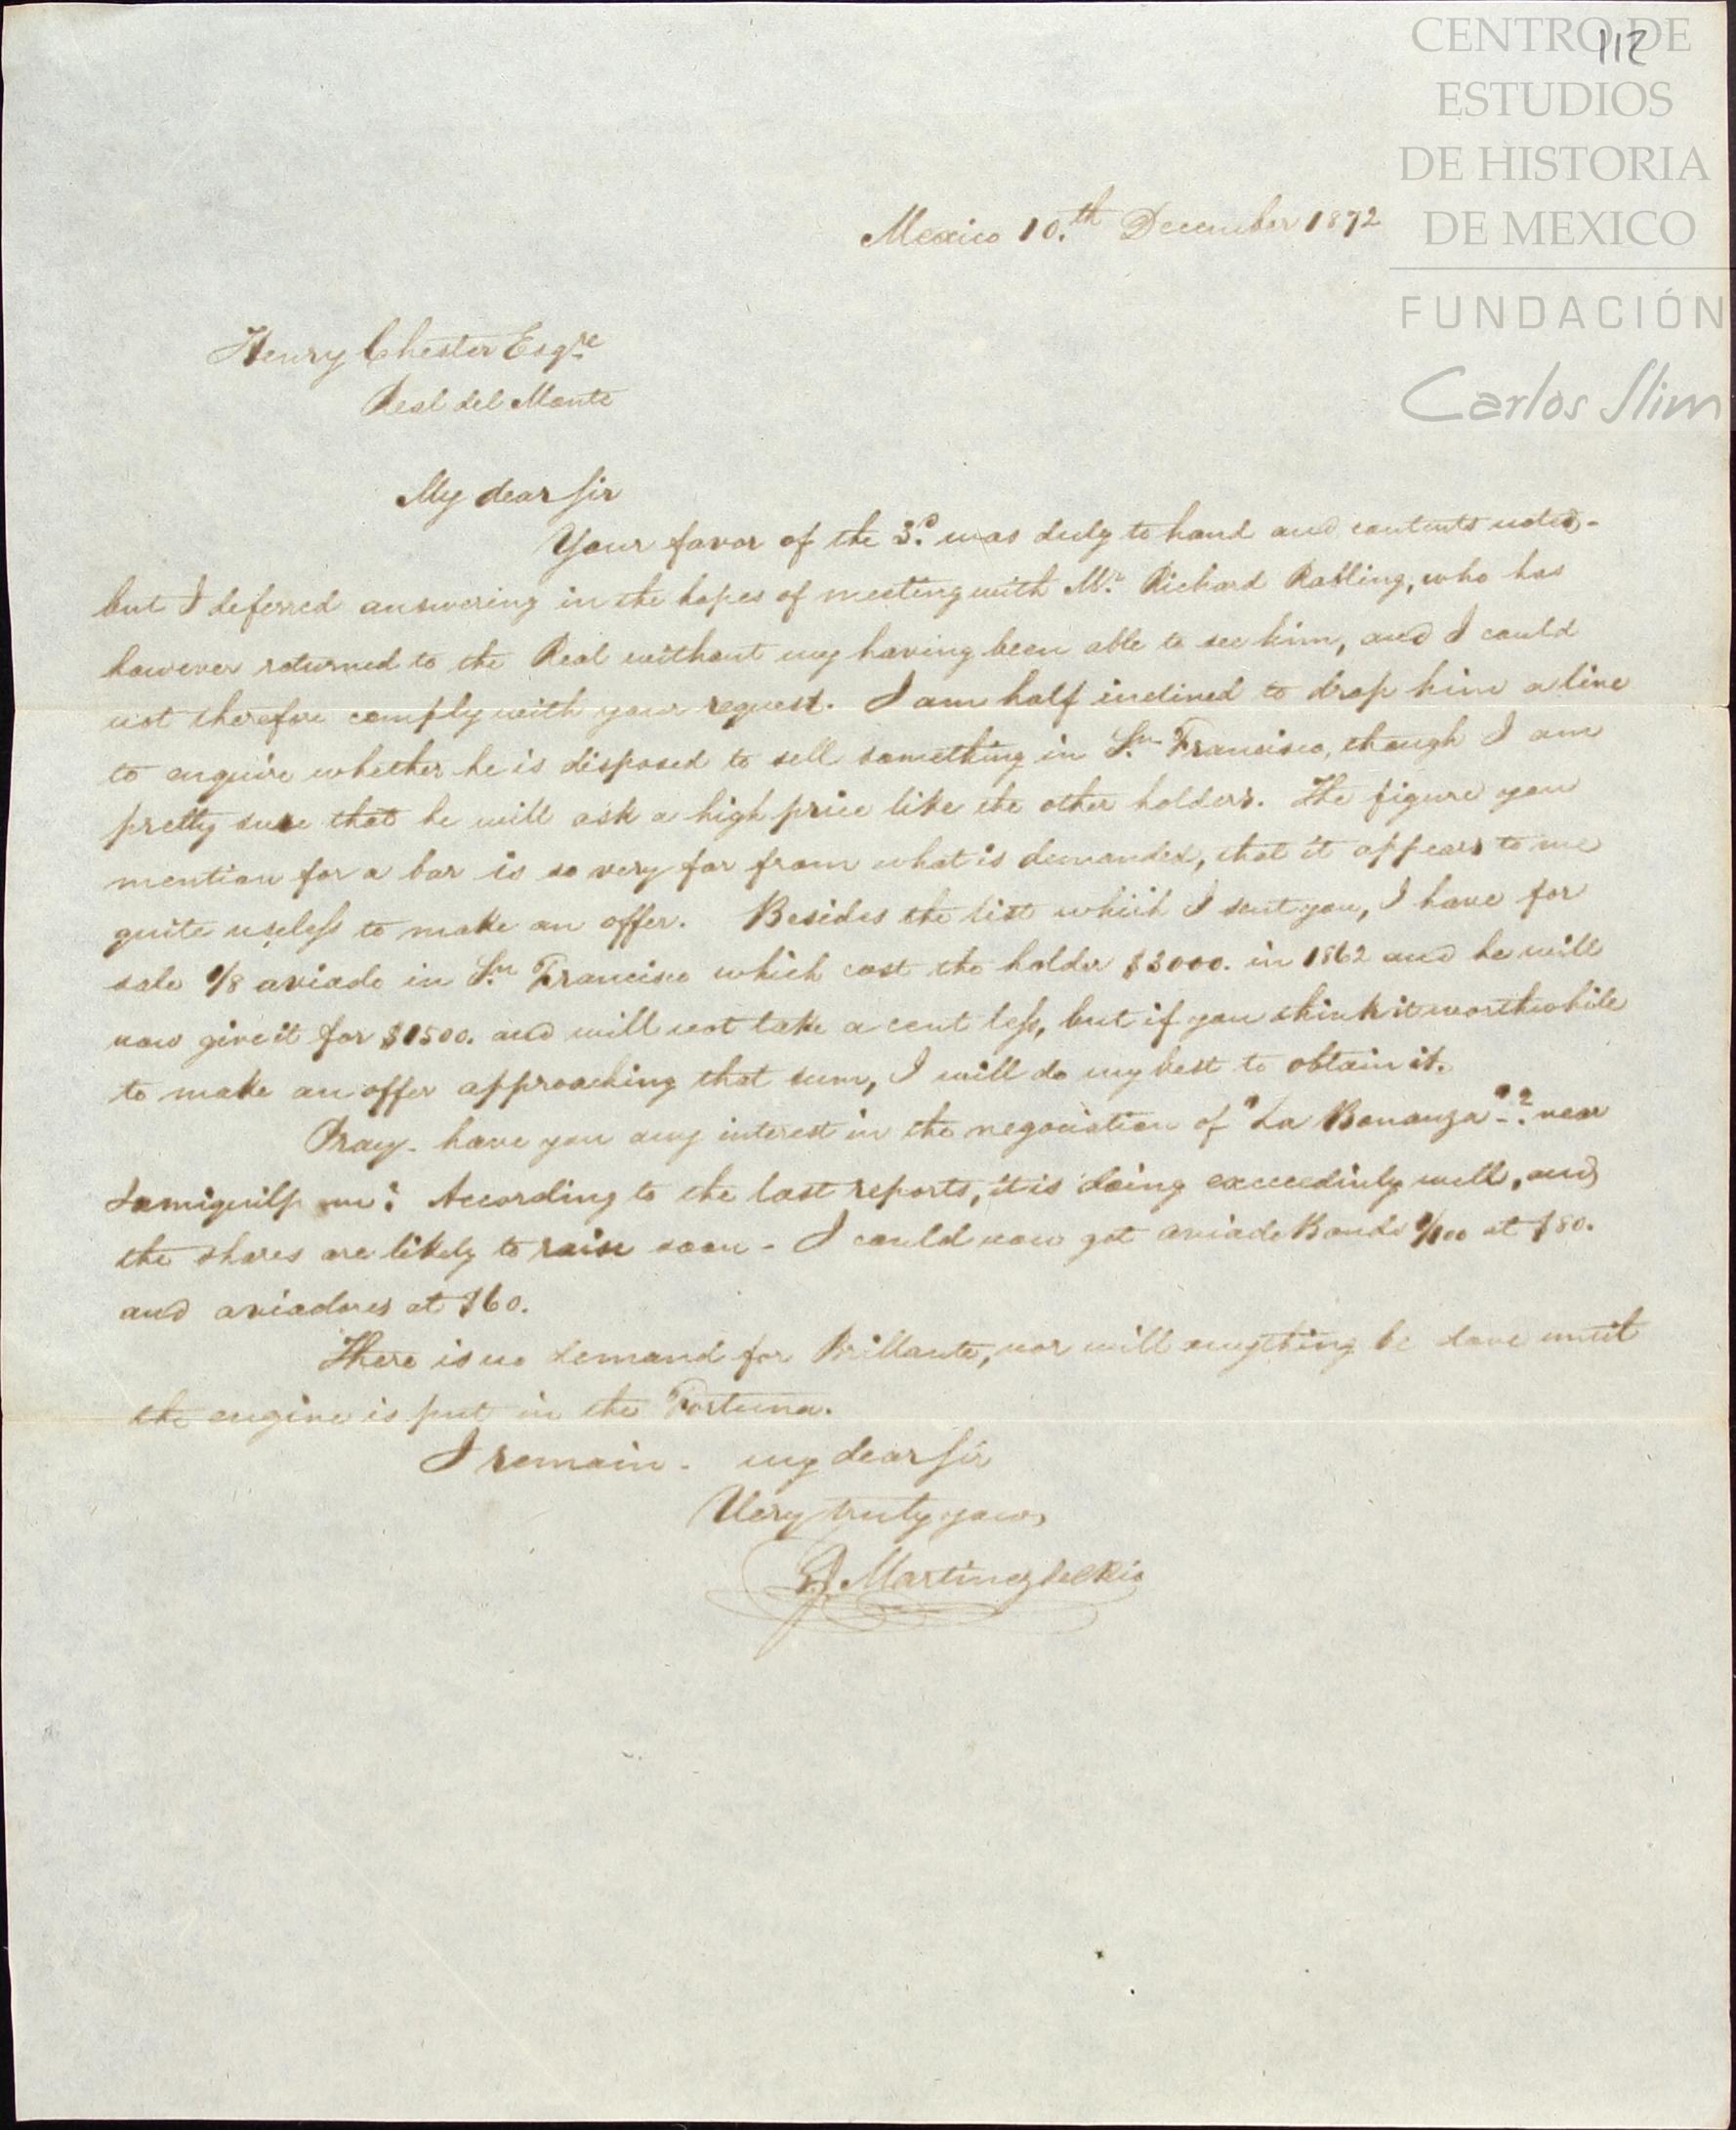 CENTRO DE
112
ESTUDIOS
DE HISTORIA
DE MEXICO
FUNDACIÓN
Carlos Slim
Mexico 10.th December 1872
Henry Chester Esqre
Real del Monte
My dear Sir
Your favor of the 3.d was duly to hand and contents noted-
but I deferred answering in the hopes of meeting with Mr. Richard Rabling, who has
however returned to the Real without my having been able to see him, and I could
not therefore comply with your request. I am half inclined to drop him a line
to enquire whether he is disposed to sell something in Sn. Francisco, though I am
pretty sure that he will ask a high price like the other holders. The figure you
mention for a bar is so very far from what is demanded, that it appears to me
quite useless to make an offer. Besides the list which I sent you, I have for
sale 1/8 aviado in Sn. Francisco which cost the holder $3000. in 1862 and he will
now give it for $1500. and will not take a cent less, but if you think it worthwhile
to make an offer approaching that sum, I will do my best to obtain it.
Pray- have you any interest in the negociation of "La Bonanza"-? near
According to the last reports, it is doing exceedinly well, and
the shares are likely to raise soon - I could now get aviado Bonds 1/100 at $80.
and aviadores at $60.
There is no demand for Brillante, nor will anything be done until
the engine is put in the Fortuna.
I remain - my dear Sir
Very truly yours
J. Martinez del Rio